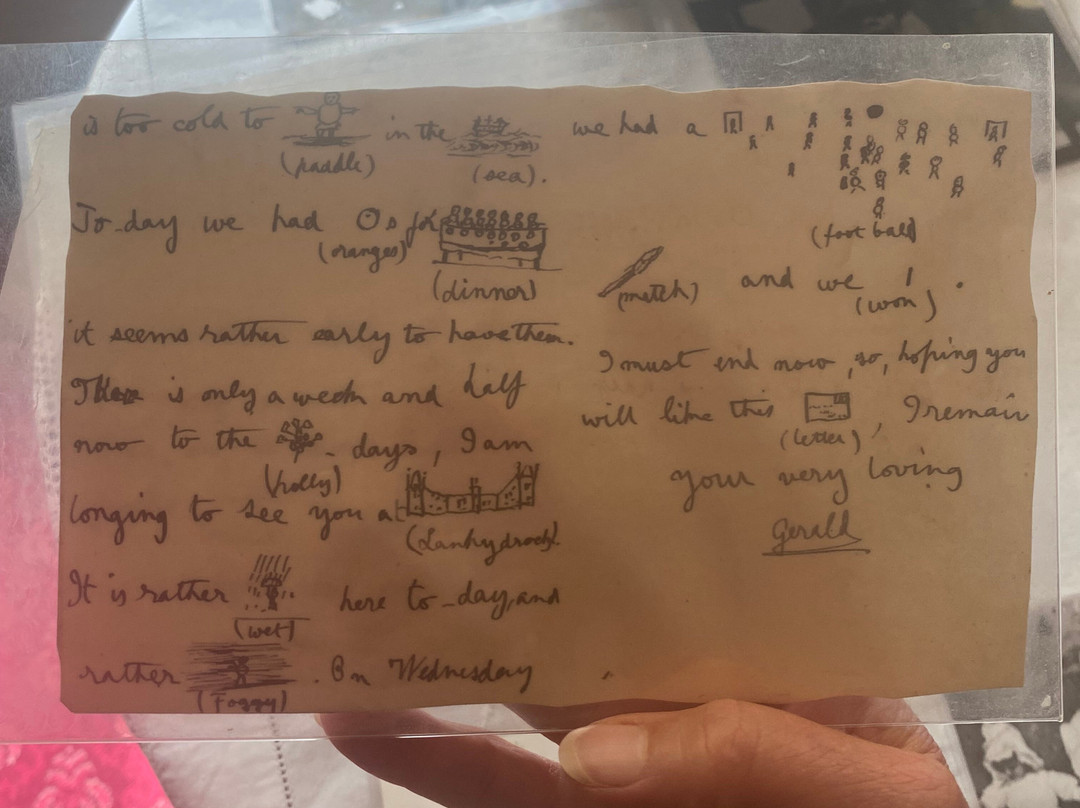 is too cold to
in the
(paddle)
(sea).
To-day we had Os for
(oranges)
(dinner)
it seems rather early to have them.
There is only a week and half
now to the - days, I am
(holly)
longing to see you at
(Lanhydrock).
It is rather here to-day, and
(wet)
rather . On Wednesday
(Foggy)
we had a
(foot ball)
(match) and we ! .
(won)
I must end now, so, hoping you
will like this , I remain
(letter)
your very loving
Gerald